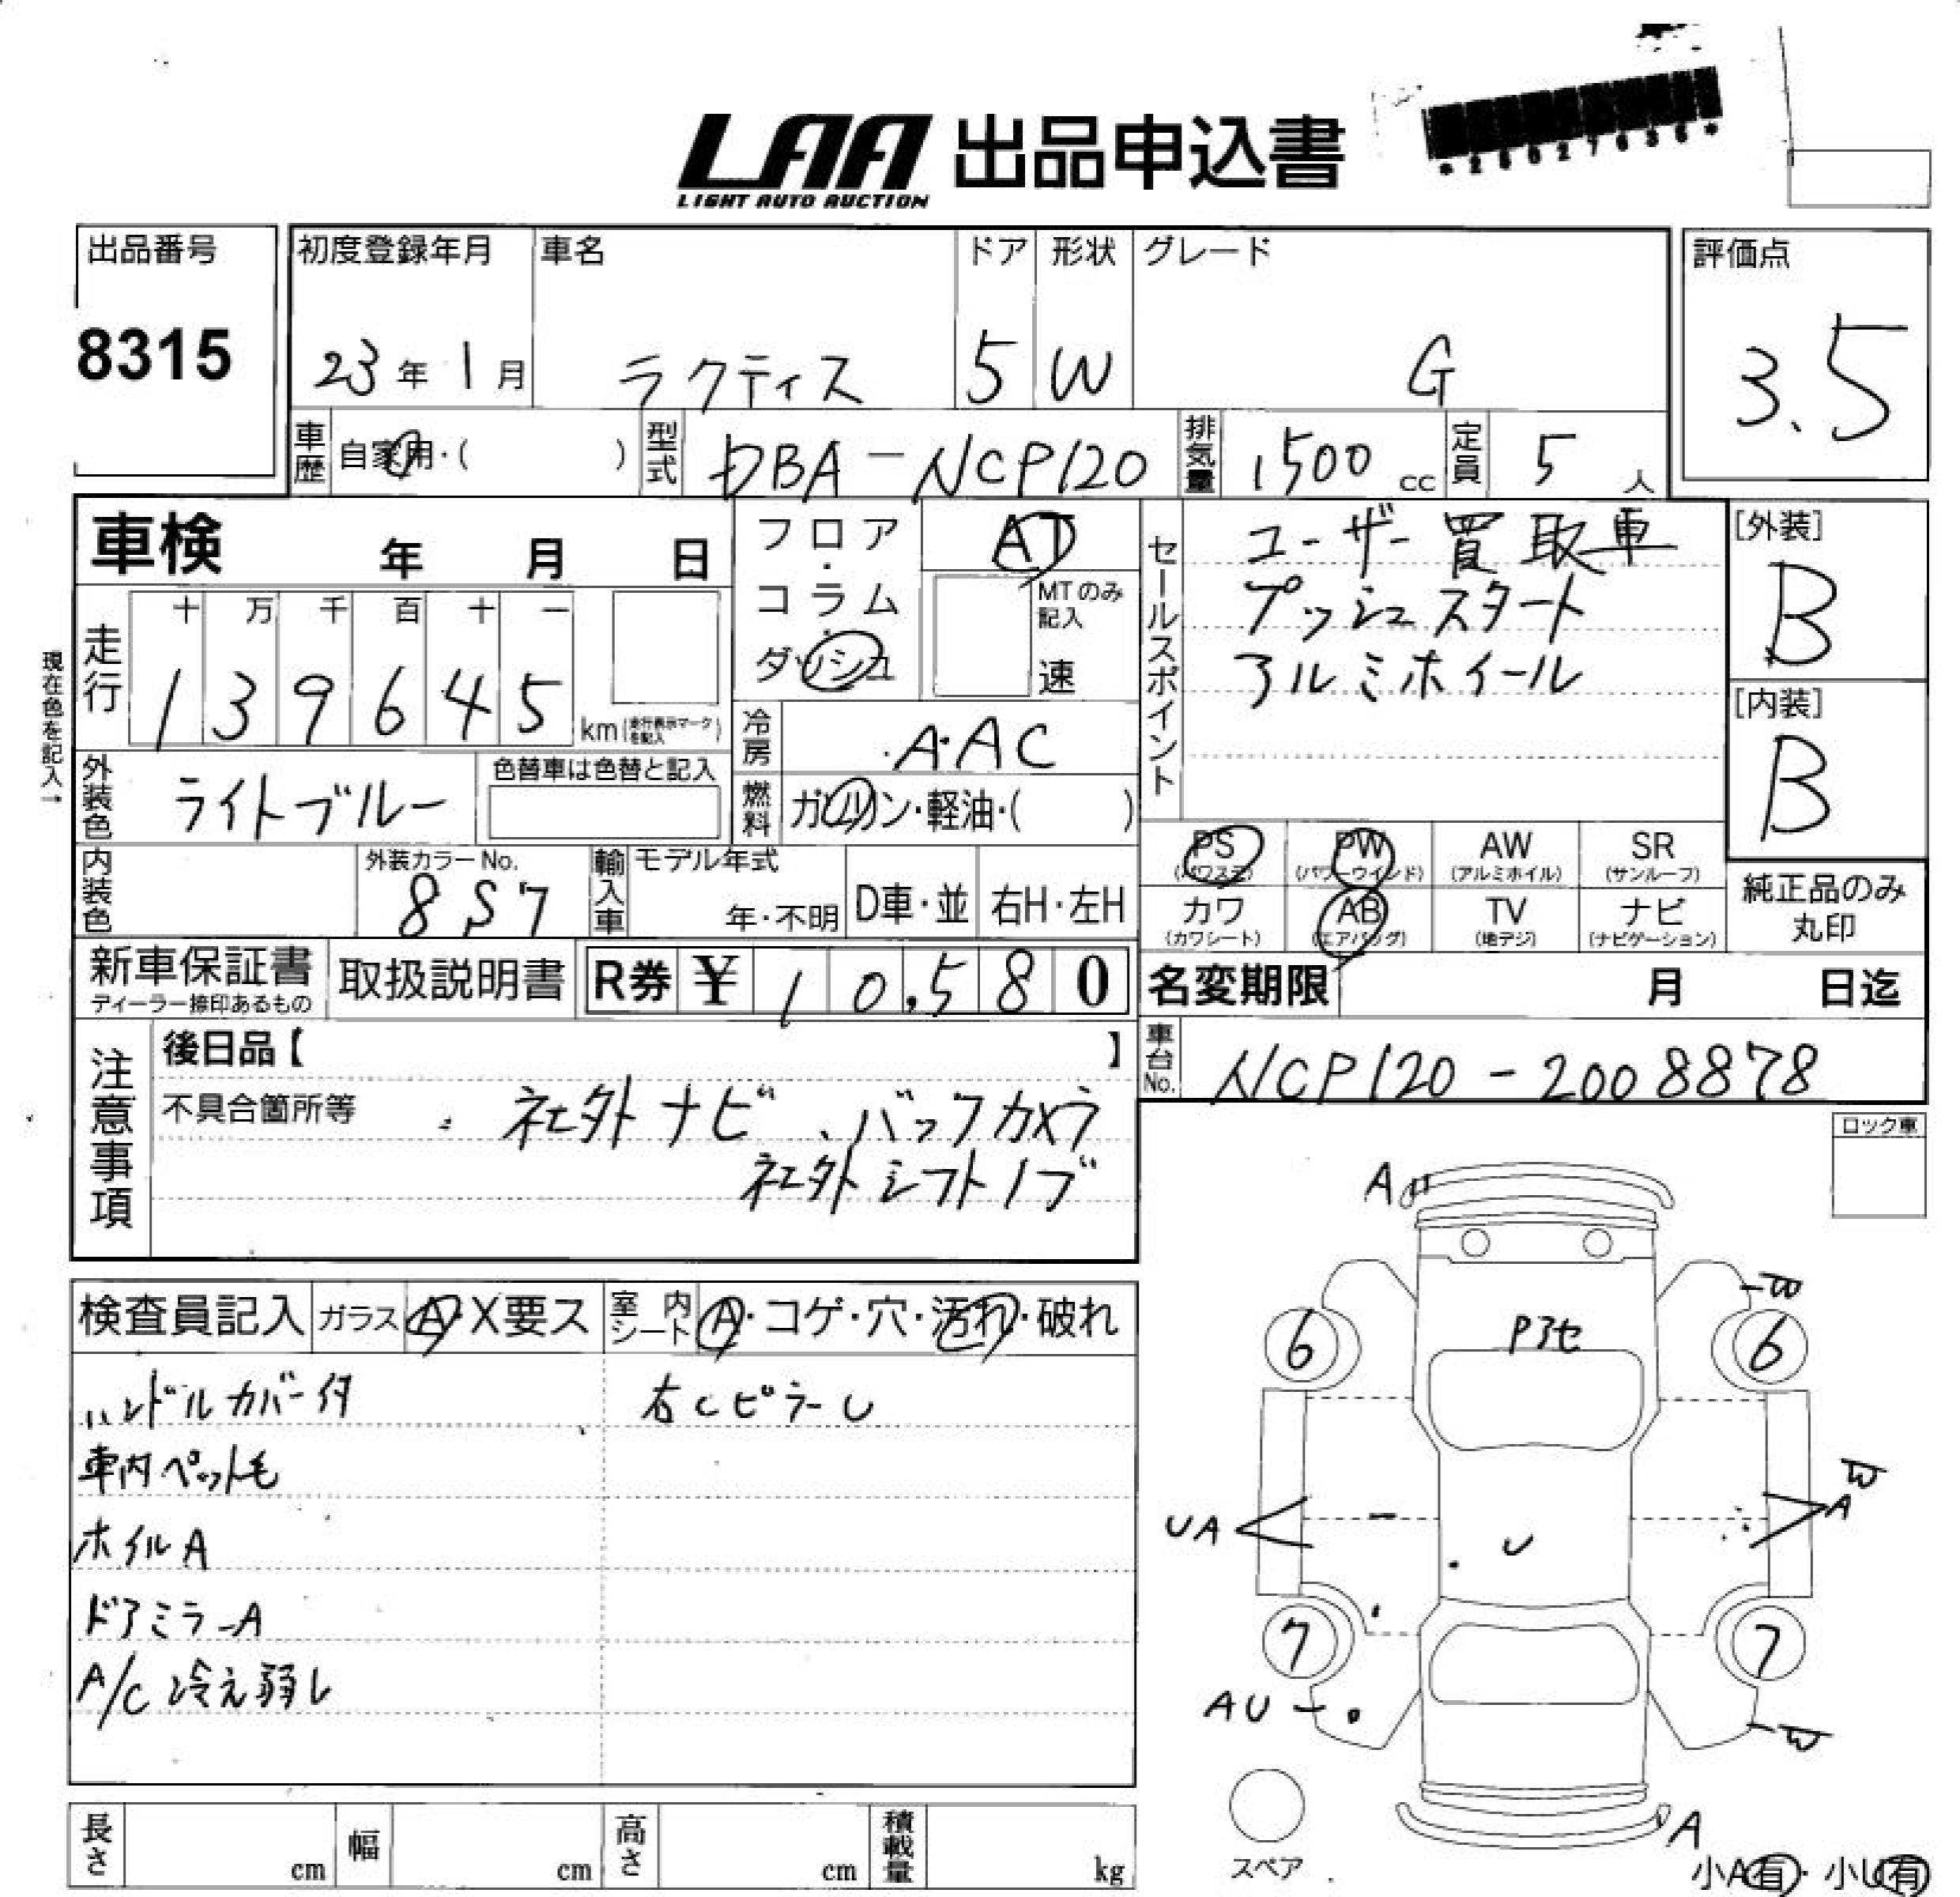 LAA 出品申込書
LIGHT AUTO AUCTION
出品番号
8315
初度登録年月 車名 ドア 形状 グレード
23年1月 ラクティス 5 W G
評価点
3.5
車歴 自家用・( ) 型式 DBA-NCP120 排気量 1500cc 定員 5人
車検 年 月 日
フロア・コラム・ダッシュ
AT
MTのみ記入
速
セールスポイント
ユーザー買取車
プッシュスタート
アルミホイール
[外装]
B
[内装]
B
現在色を記入→
走行
十 万 千 百 十 一
1 3 9 6 4 5 km(走行表示マークを記入)
冷房 A・AC
外装色 ライトブルー
色替車は色替と記入
燃料 ガソリン・軽油・( )
内装色
外装カラーNo.
8S7
輸入車 モデル年式
年・不明 D車・並 右H・左H
PS (パワステ) PW (パワーウインド) AW (アルミホイル) SR (サンルーフ)
カワ (カワシート) AB (エアバッグ) TV (地デジ) ナビ (ナビゲーション)
純正品のみ
丸印
新車保証書
ディーラー捺印あるもの
取扱説明書
R券 ¥ 10,580
名変期限 月 日迄
車台No. NCP120-2008878
注意事項
後日品【 】
不具合箇所等
社外ナビ、バックカメラ
社外シフトノブ
ロック車
検査員記入 ガラス A・X要ス 室内シート A・コゲ・穴・汚れ・破れ
ハンドルカバー付 右CピラーU
車内ペット毛
ホイルA
ドアミラーA
A/C冷え弱し
A
W
6 Pアセ 6
W
UA U A
7 7
AU W
A
スペア
小A有・小U有
長さ cm 幅 cm 高さ cm 積載量 kg